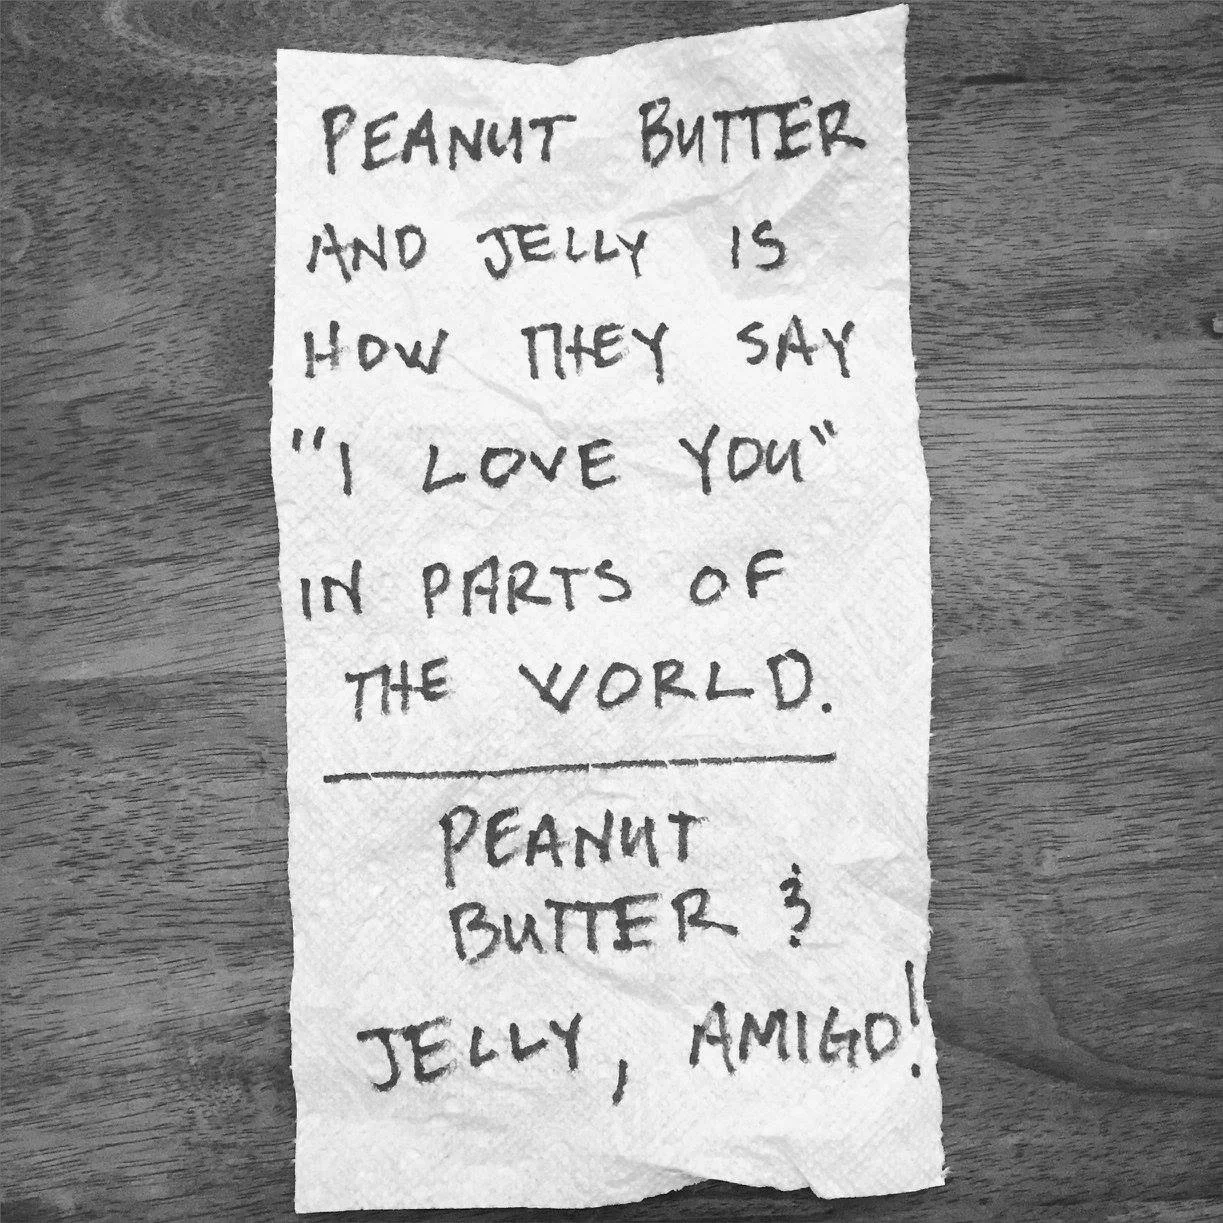 PEANUT BUTTER
AND JELLY IS
HOW THEY SAY
"I LOVE YOU"
IN PARTS OF
THE WORLD.
PEANUT
BUTTER &
JELLY, AMIGO!